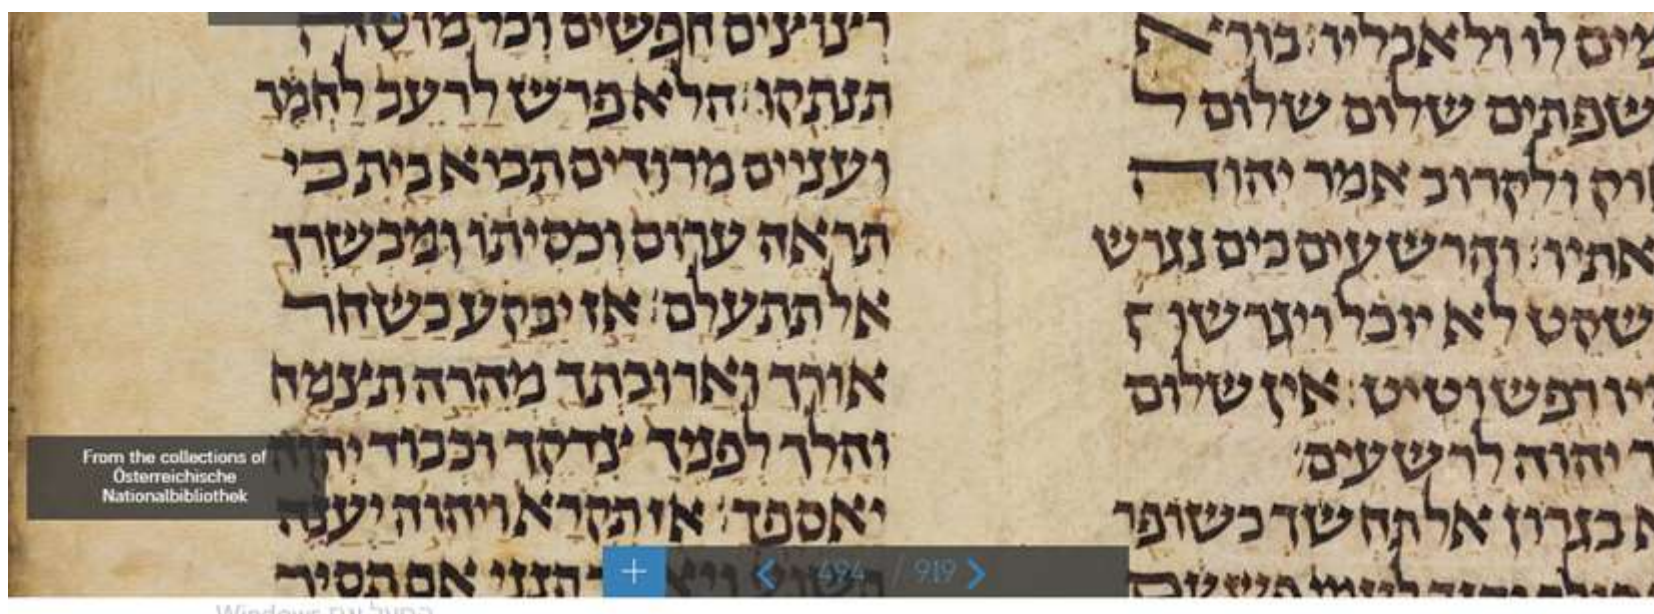 מים לו ולאבליו׃ בורא
שפתים שלום שלום ל
וק ולקרוב אמר יהוה
אתיו׃ והרשעים כים נגרש
שקט לא יוכל ויגרשו
יו רפש וטיט׃ אין שלום
ר יהוה לרשעים׃
א בגרון אל תחשך כשופר
לעמי פשעם
רצוצים חפשים וכל מוטה
תנתקו׃ הלא פרש לרעב לחמך
ועניים מרודים תביא בית כי
תראה ערום וכסיתו ומבשרך
אל תתעלם׃ אז יבקע כשחר
אורך וארוכתך מהרה תצמח
והלך לפניך צדקך וכבוד יהוה
יאספך׃ אז תקרא ויהוה יענה
תשוע הנני אם תסיר
From the collections of
Österreichische
Nationalbibliothek
494 / 919
Windows